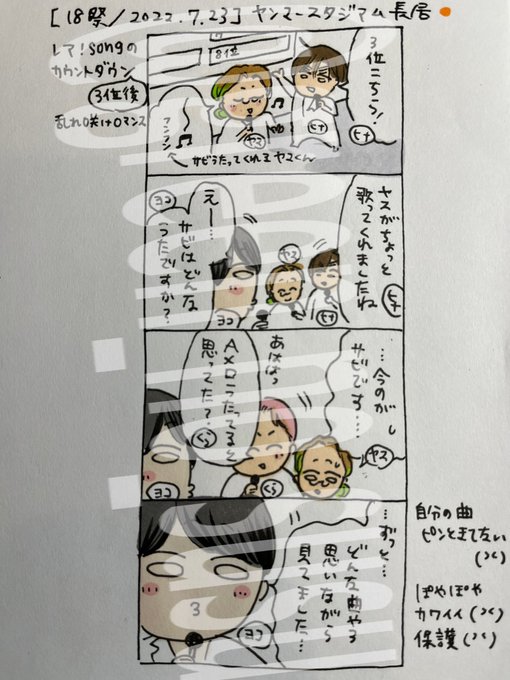 [18祭/2022.7.23] ヤンマースタジアム長居
レア!songの
カウントダウン
3位後
乱れ咲けロマンス
8位
3位こちら!
ヒナ
ヤス
フンフン
サビうたってくれるヤスくん
ヤスがちょっと
歌ってくれましたね
ヒナ
ヤス
ヒナ
えー…
サビはどんな
うたですか?
ヨコ
ヨコ
…今のが
サビです…
ヤス
あははっ
Aメロうたってると
思ってた?
くら
くら
ヨコ
…ずっと…
どんな曲やろ
思いながら
見てました…
ヨコ
3
自分の曲
ピンときてない
(笑)
ぽやぽや
カワイイ(笑)
保護(笑)